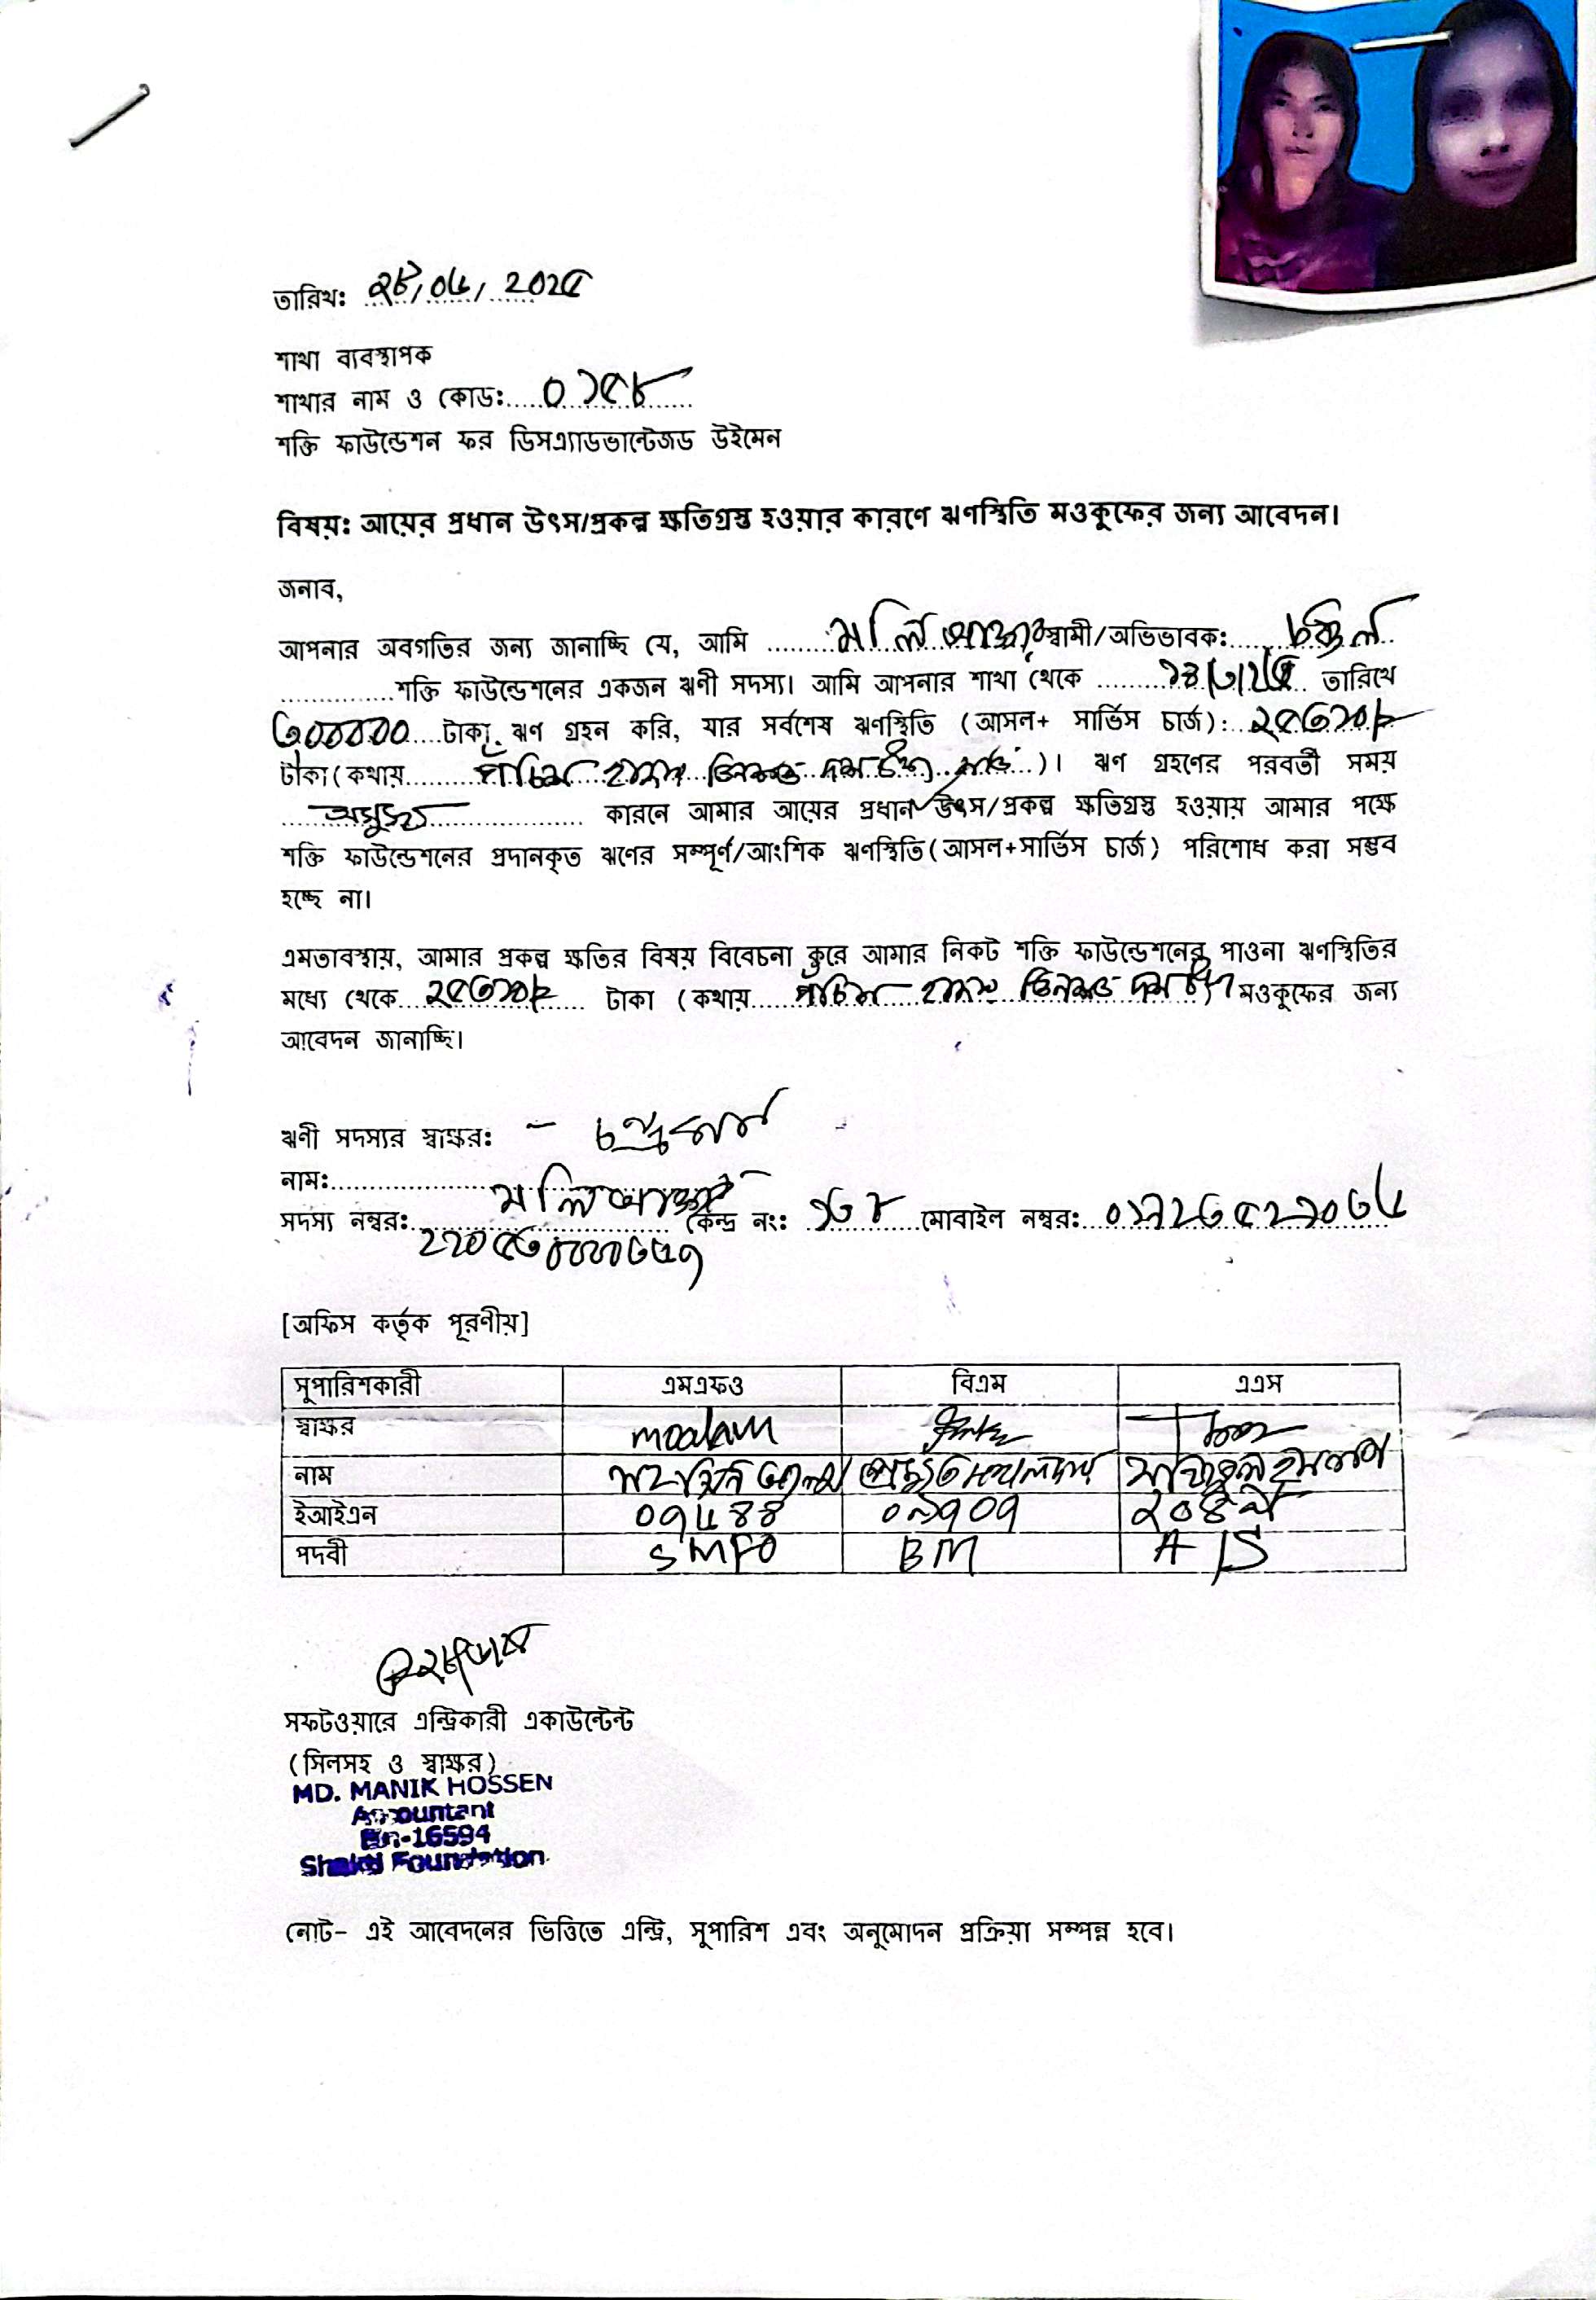 তারিখ: ২৮,০৬, ২০২৫
শাখা ব্যবস্থাপক
শাখার নাম ও কোড: ০১৫৮
শক্তি ফাউন্ডেশন ফর ডিসএ্যাডভান্টেজড উইমেন
বিষয়: আয়ের প্রধান উৎস/প্রকল্প ক্ষতিগ্রস্ত হওয়ার কারণে ঋণস্থিতি মওকুফের জন্য আবেদন।
জনাব,
আপনার অবগতির জন্য জানাচ্ছি যে, আমি মলি আক্তার স্বামী/অভিভাবক:
শক্তি ফাউন্ডেশনের একজন ঋণী সদস্য। আমি আপনার শাখা থেকে তারিখে
৩০০০০ টাকা ঋণ গ্রহন করি, যার সর্বশেষ ঋণস্থিতি (আসল+ সার্ভিস চার্জ): ২৫৩১০/-
টাকা (কথায় পঁচিশ হাজার তিনশত দশ টাকা মাত্র)। ঋণ গ্রহণের পরবর্তী সময়
অসুস্থ্য কারনে আমার আয়ের প্রধান উৎস/প্রকল্প ক্ষতিগ্রস্ত হওয়ায় আমার পক্ষে
শক্তি ফাউন্ডেশনের প্রদানকৃত ঋণের সম্পূর্ণ/আংশিক ঋণস্থিতি(আসল+সার্ভিস চার্জ) পরিশোধ করা সম্ভব
হচ্ছে না।
এমতাবস্থায়, আমার প্রকল্প ক্ষতির বিষয় বিবেচনা করে আমার নিকট শক্তি ফাউন্ডেশনের পাওনা ঋণস্থিতির
মধ্যে থেকে ২৫৩১০/- টাকা (কথায় পঁচিশ হাজার তিনশত দশ টাকা) মওকুফের জন্য
আবেদন জানাচ্ছি।
ঋণী সদস্যর স্বাক্ষর: -
নাম: মলি আক্তার
সদস্য নম্বর: কেন্দ্র নং: ১৩৮ মোবাইল নম্বর:
[অফিস কর্তৃক পূরণীয়]
সুপারিশকারী এমএফও বিএম এএস
স্বাক্ষর
নাম
ইআইএন ০৭৬৪৪ ০৯৭০৭
পদবী SMFO BM A/S
সফটওয়ারে এন্ট্রিকারী একাউন্টেন্ট
(সিলসহ ও স্বাক্ষর)
MD. MANIK HOSSEN
Accountant
Ein-16594
Shakti Foundation
নোট- এই আবেদনের ভিত্তিতে এন্ট্রি, সুপারিশ এবং অনুমোদন প্রক্রিয়া সম্পন্ন হবে।